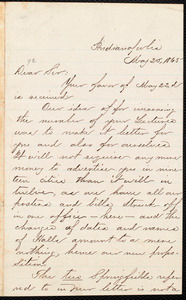 Indianapolis
May 25, 1865
Dear Sir.
Your favor of May 22d
is received.
Our idea of increasing
the number of your Lectures
was to make it better for
you and also for ourselves
It will not require any more
money to advertise you in nine
teen cities than it will
twelve, as we have all our
posters and bills struck off
in one office — here — and the
changes of dates and names
of Halls amount to a mere
nothing, hence our new propo
sition.
The two Springfields refered
to in your letter is not a